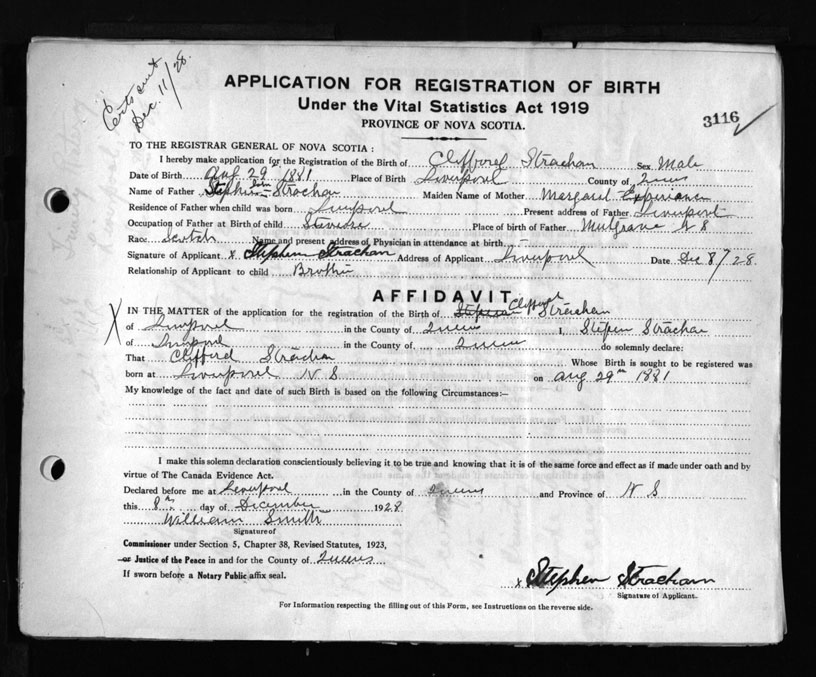 Certs sent
Dec. 11/28.
APPLICATION FOR REGISTRATION OF BIRTH
Under the Vital Statistics Act 1919
PROVINCE OF NOVA SCOTIA.
3116
TO THE REGISTRAR GENERAL OF NOVA SCOTIA:
I hereby make application for the Registration of the Birth of Clifford Strachan Sex Male
Date of Birth Aug 29 1881 Place of Birth Liverpool County of Queens
Name of Father Stephen Strachan Maiden Name of Mother Margaret Experience
Residence of Father when child was born Liverpool Present address of Father Liverpool
Occupation of Father at Birth of child Place of birth of Father Mulgrave N S
Race Scotch Name and present address of Physician in attendance at birth
Signature of Applicant x Stephen Strachan Address of Applicant Liverpool Date Dec 8/28.
Relationship of Applicant to child Brother
AFFIDAVIT
IN THE MATTER of the application for the registration of the Birth of Clifford Strachan
of Liverpool in the County of Queens I, Stepen Strachan
of Liverpool in the County of Queens do solemnly declare:
That Clifford Strachan Whose Birth is sought to be registered was
born at Liverpool N S on Aug 29th 1881
My knowledge of the fact and date of such Birth is based on the following Circumstances:—
I make this solemn declaration conscientiously believing it to be true and knowing that it is of the same force and effect as if made under oath and by
virtue of The Canada Evidence Act.
Declared before me at Liverpool in the County of Queens and Province of N S
this 8th day of December 1928
William Smith
Signature of
Commissioner under Section 5, Chapter 38, Revised Statutes, 1923,
or Justice of the Peace in and for the County of Queens
If sworn before a Notary Public affix seal.
x Stephen Strachan
Signature of Applicant.
For Information respecting the filling out of this Form, see Instructions on the reverse side.